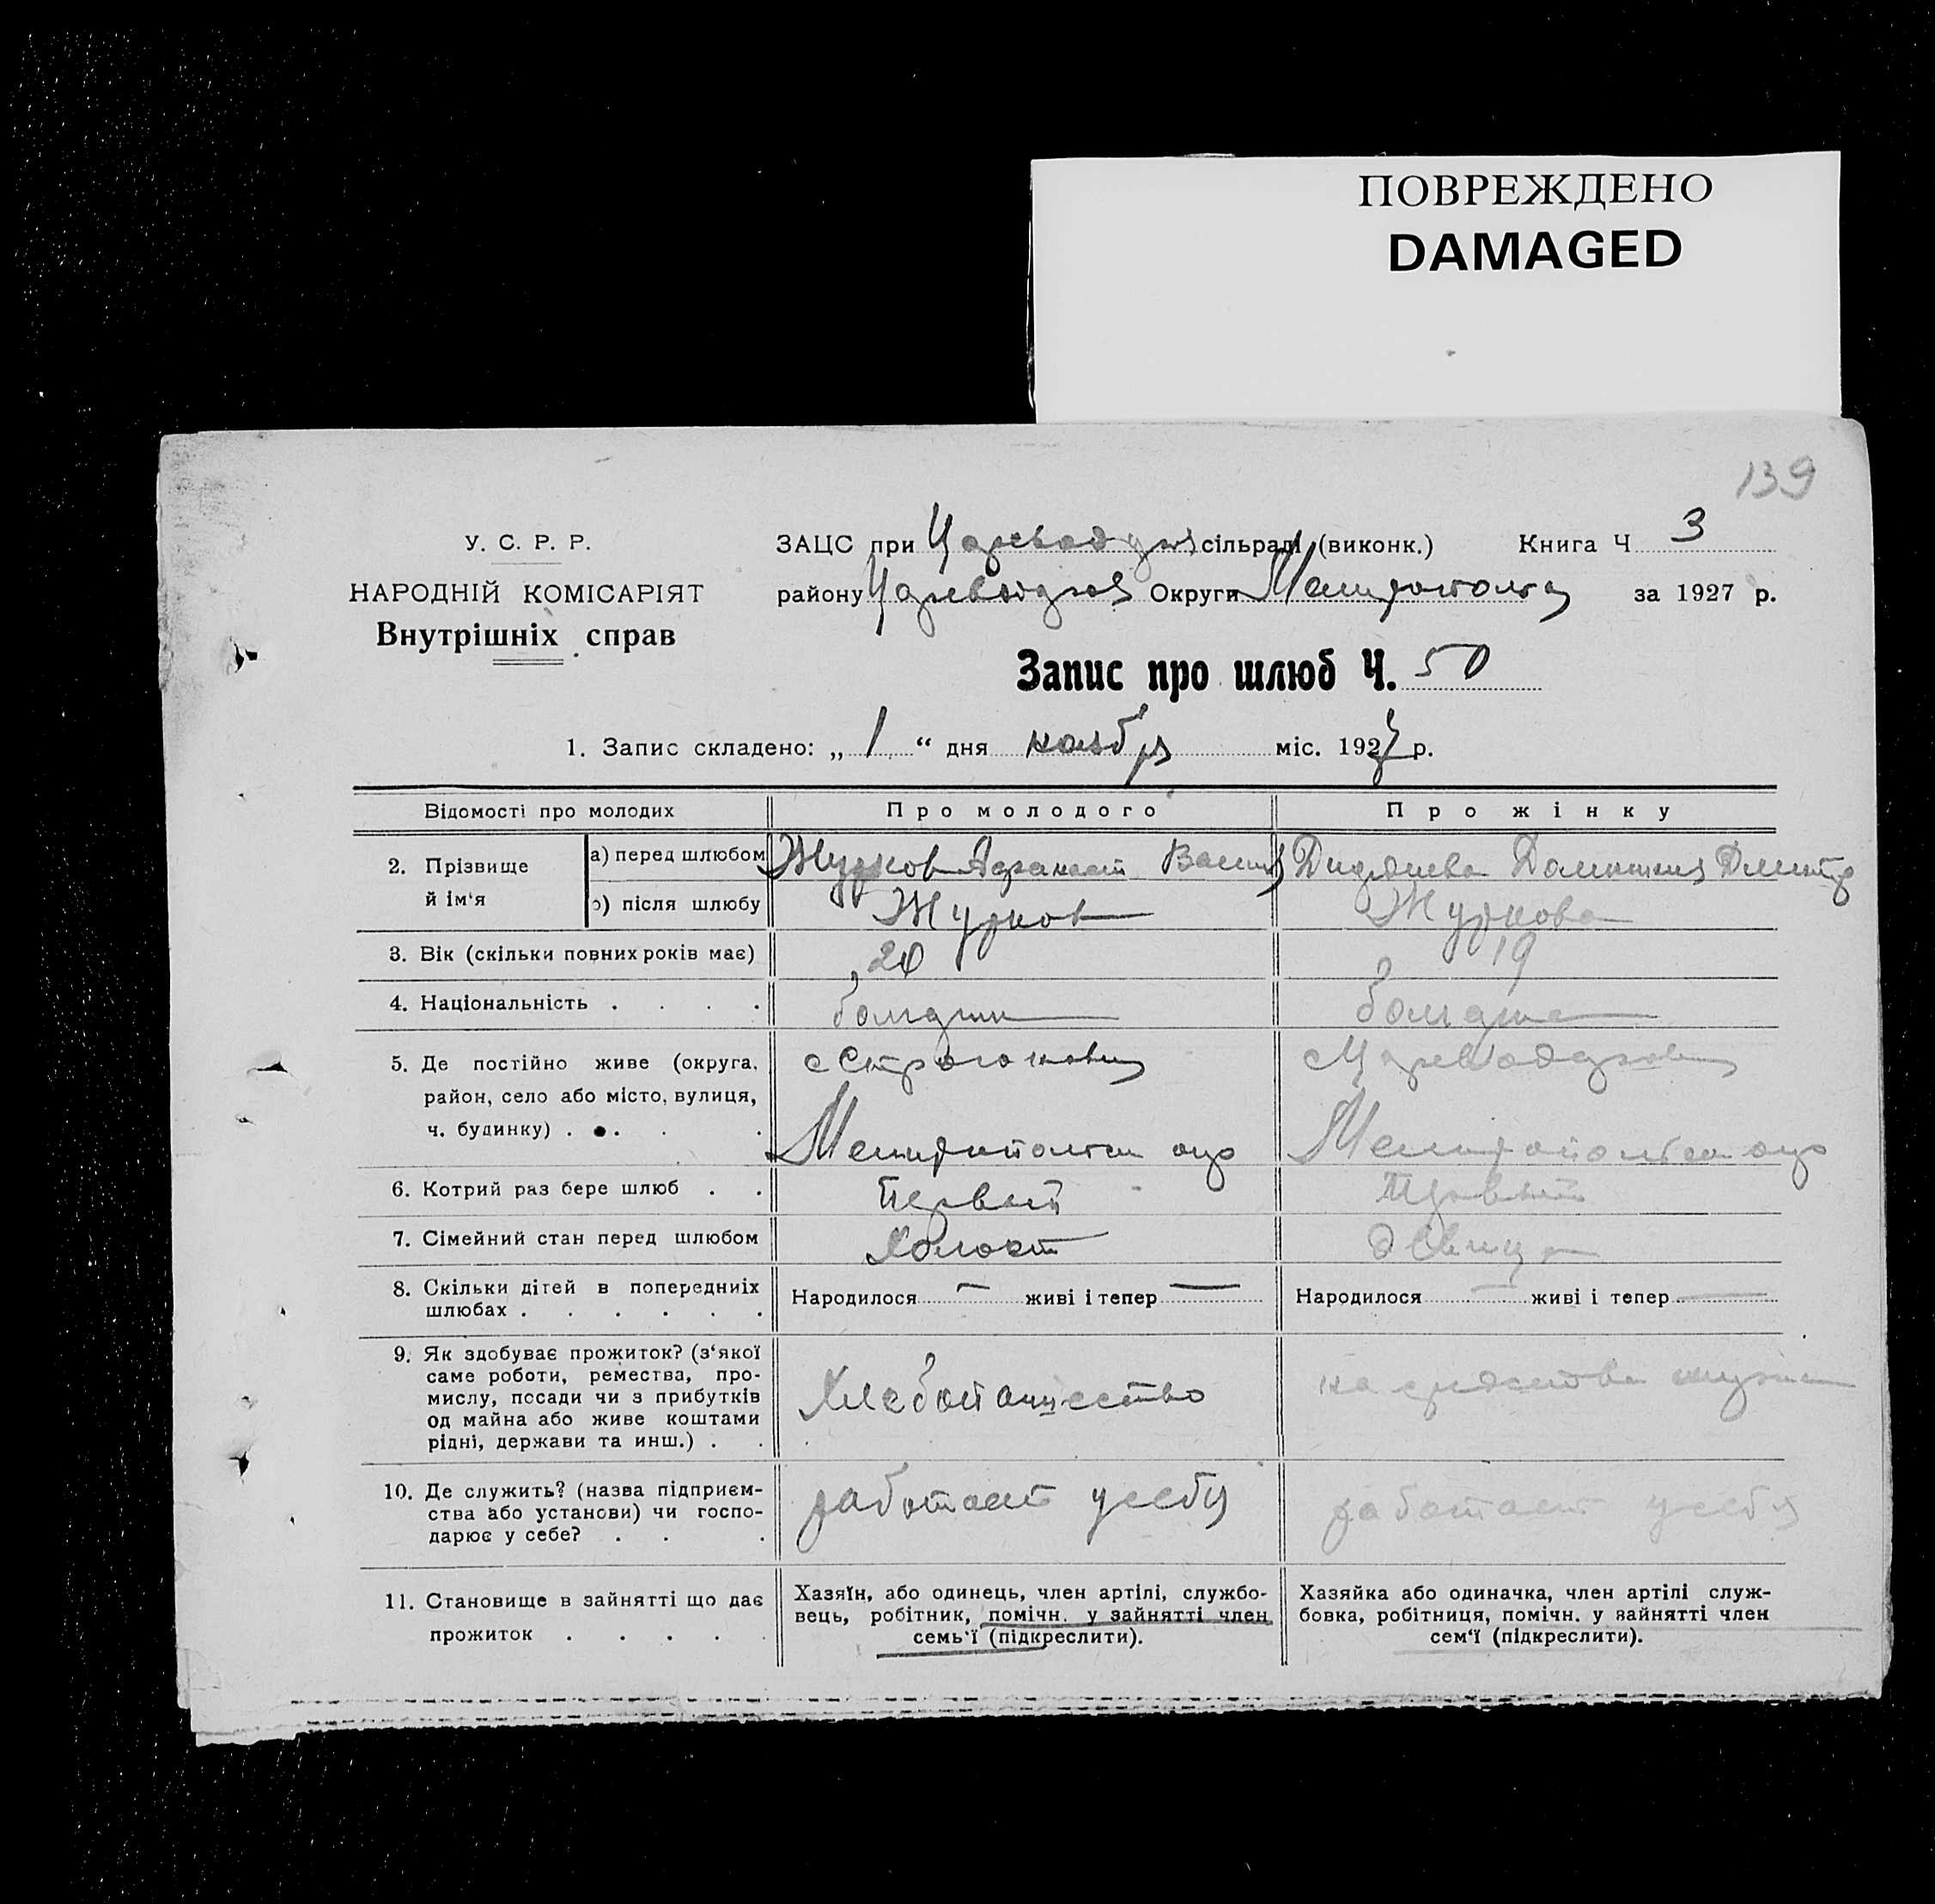 ПОВРЕЖДЕНО
DAMAGED
139
У. С. Р. Р.
НАРОДНІЙ КОМІСАРІЯТ
Внутрішніх справ
ЗАЦС при сільраді (виконк.) Книга Ч 3
району Округи за 1927 р.
Запис про шлюб Ч. 50
1. Запис складено: „ 1 “ дня ноября міс. 1927 р.
Відомості про молодих Про молодого Про жінку
2. Прізвище й ім‘я
а) перед шлюбом Журков Афанасий Домникия
б) після шлюбу Журков Журкова
3. Вік (скільки повних років має) 20 19
4. Національність . . . . болгарин болгарка
5. Де постійно живе (округа, район, село або місто, вулиця, ч. будинку) . .
с Строгановка
Мелитопольск окр Мелитопольск окр
6. Котрий раз бере шлюб . . Первый Первый
7. Сімейний стан перед шлюбом Холост девица
8. Скільки дітей в попередниіх шлюбах . . . . . .
Народилося — живі і тепер — Народилося — живі і тепер —
9. Як здобуває прожиток? (з‘якої саме роботи, ремества, про-мислу, посади чи з прибутків од майна або живе коштами рідні, держави та инш.) . .
Хлебопашество на средства мужа
10. Де служить? (назва підприєм-ства або установи) чи госпо-дарює у себе? . . .
работает у себя работает у себя
11. Становище в зайнятті що дає прожиток . . . . .
Хазяїн, або одинець, член артілі, службо-
вець, робітник, помічн. у зайнятті член
семь‘ї (підкреслити).
Хазяйка або одиначка, член артілі служ-
бовка, робітниця, помічн. у зайнятті член
сем‘ї (підкреслити).